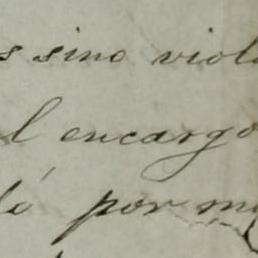 s sino viol
l encargo
ló por m